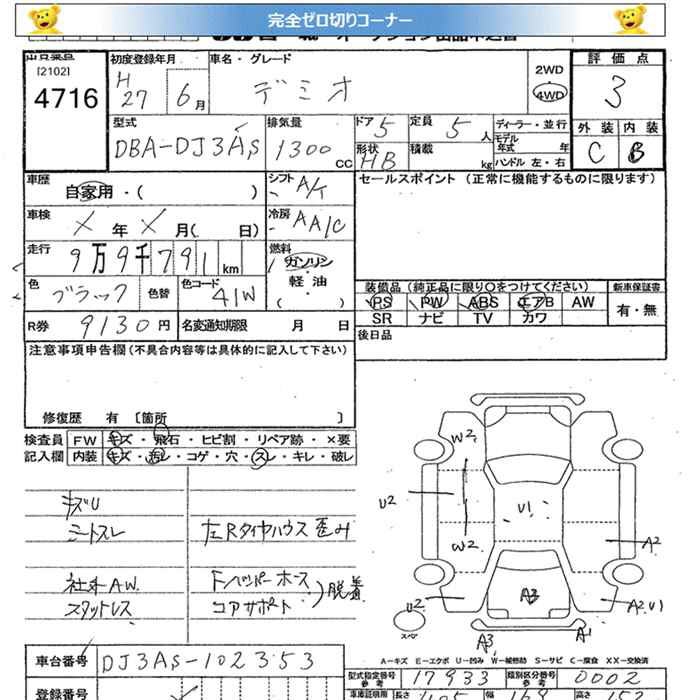 完全ゼロ切りコーナー
[2102]
4716
初度登録年月
H
27 6月
車名・グレード
デミオ
2WD
4WD
評価点
3
外装 内装
C B
型式
DBA-DJ3AS
排気量
1300 CC
ドア 5
定員 5人
形状 HB
積載 kg
ディーラー・並行
モデル年式 年
ハンドル 左・右
車歴
自家用・( )
シフト A/T
セールスポイント (正常に機能するものに限ります)
車検
年 月( 日)
冷房 AA/C
走行
9万9千791km
燃料
ガソリン
・
軽・油
( )
色
ブラック
色替
色コード
41W
装備品(純正品に限り○をつけてください)
PS PW ABS エアB AW
SR ナビ TV カワ
新車保証書
有・無
R券 9130円
名変通知期限 月 日
後日品
注意事項申告欄(不具合内容等は具体的に記入して下さい)
修復歴 有 〔箇所 〕
検査員 FW キズ・飛石・ヒビ割・リペア跡・×要
記入欄 内装 キズ・汚レ・コゲ・穴・スレ・キレ・破レ
キズU
シートスレ
左Rタイヤハウス歪み
社外AW.
スタットレス
Fバンパーホース
コアサポート
)脱着
W2
U2
U1
W2
A2
U2
A3
A2U1
スペア
A3
A1
A-キズ E-エクボ U-凹み W-補修跡 S-サビ C-腐食 XX-交換済
車台番号 DJ3AS-102353
型式指定番号
参考
17933
類別区分番号
参考
0002
登録番号
車庫証明用
長さ
幅
高さ